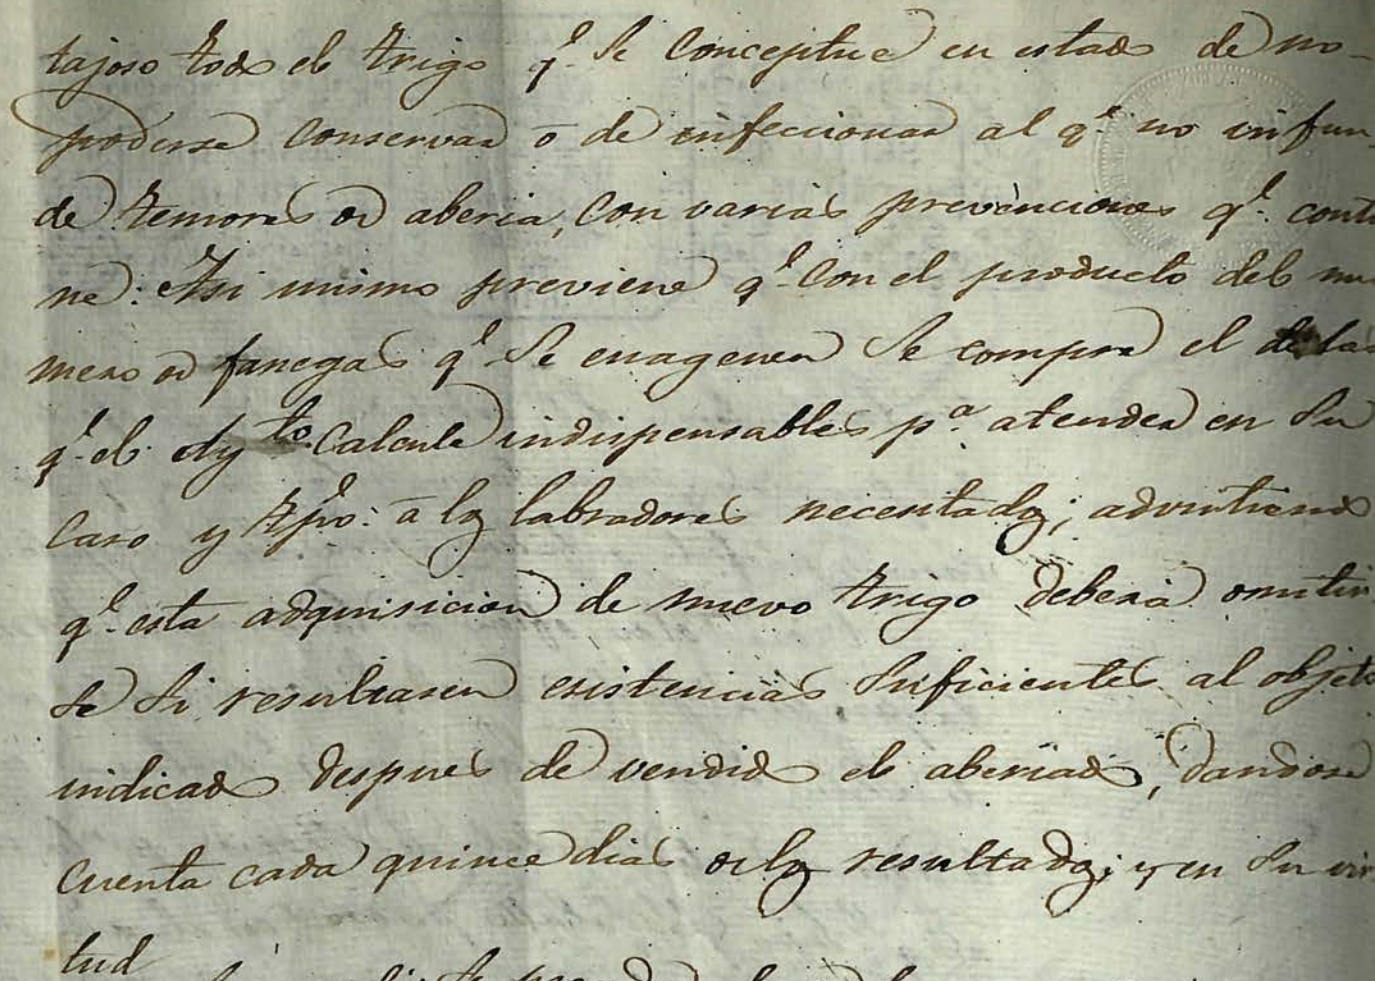 tajoso todo el trigo q.e se conceptue en estado de no
poderse conservar ō de infeccionar al q.e no infun
de temores de aberia, con varias prevenciones q.e conti
ne: Asi mismo previene q.e con el producto del nu
mero de fanegas q.e se enagenen se compre el de las
q.e el Ay.to calcule indispensables p.a atender en su
caso y tpo. ā los labradores necesitados; advirtiendo
q.e esta adquisicion de nuevo trigo deberá omitir
se si resultasen existencias suficientes al objeto
indicado despues de vendido el aberiado, dandose
cuenta cada quince dias de los resultados; y en su vir
tud